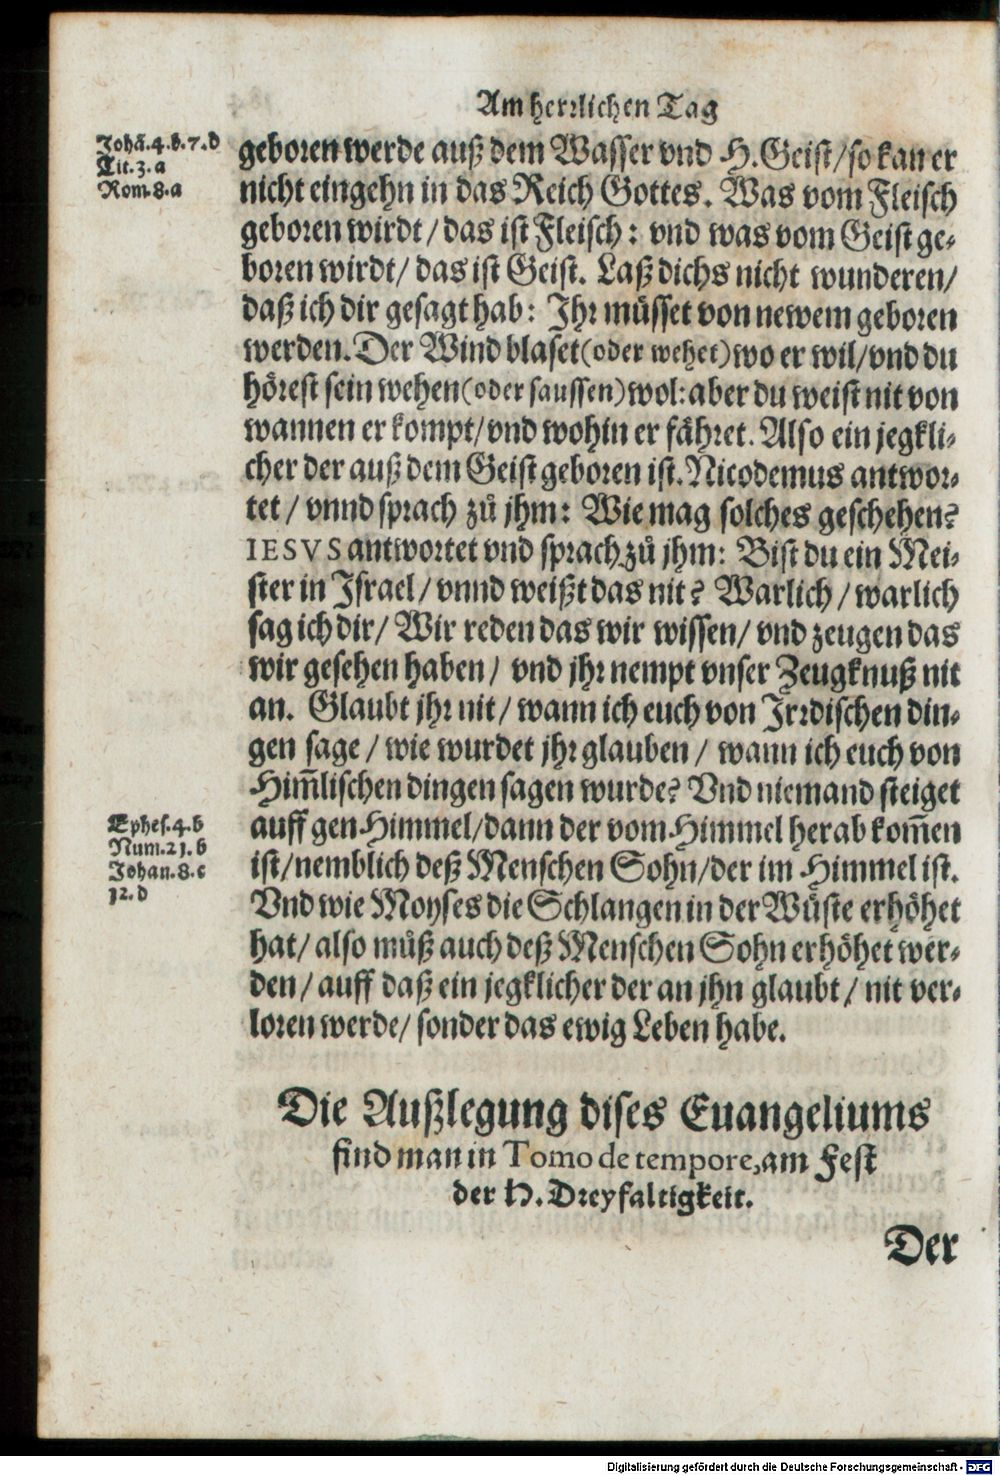 Am herrlichen Tag
Johã.4.b.7.d
Tit.3.a
Rom.8.a
geboren werde auß dem Wasser vnd H.Geist/so kan er
nicht eingehn in das Reich Gottes. Was vom Fleisch
geboren wirdt/das ist Fleisch: vnd was vom Geist ge-
boren wirdt/das ist Geist. Laß dichs nicht wunderen/
daß ich dir gesagt hab: Ihr müsset von newem geboren
werden.Der Wind blaset(oder wehet)wo er wil/vnd du
hörest sein wehen(oder saussen)wol:aber du weist nit von
wannen er kompt/vnd wohin er fähret.Also ein jegkli-
cher der auß dem Geist geboren ist.Nicodemus antwor-
tet/vnnd sprach zů jhm: Wie mag solches geschehen?
IESVS antwortet vnd sprach zů jhm: Bist du ein Mei-
ster in Israel/vnnd weißt das nit? Warlich/warlich
sag ich dir/Wir reden das wir wissen/vnd zeugen das
wir gesehen haben/ vnd jhr nempt vnser Zeugknuß nit
an. Glaubt jhr nit/wann ich euch von Irrdischen din-
gen sage/wie wurdet jhr glauben/wann ich euch von
Him̃lischen dingen sagen wurde? Vnd niemand steiget
Ephes.4.b
Num.21.b
Johan.8.c
12.d
auff gen Himmel/dann der vom Himmel herab kom̃en
ist/nemblich deß Menschen Sohn/der im Himmel ist.
Vnd wie Moyses die Schlangen in der Wüste erhöhet
hat/also můß auch deß Menschen Sohn erhöhet wer-
den/auff daß ein jegklicher der an jhn glaubt/nit ver-
loren werde/sonder das ewig Leben habe.
Die Außlegung dises Euangeliums
find man in Tomo de tempore,am Fest
der H.Dreyfaltigkeit.
Der
Digitalisierung gefördert durch die Deutsche Forschungsgemeinschaft - DFG